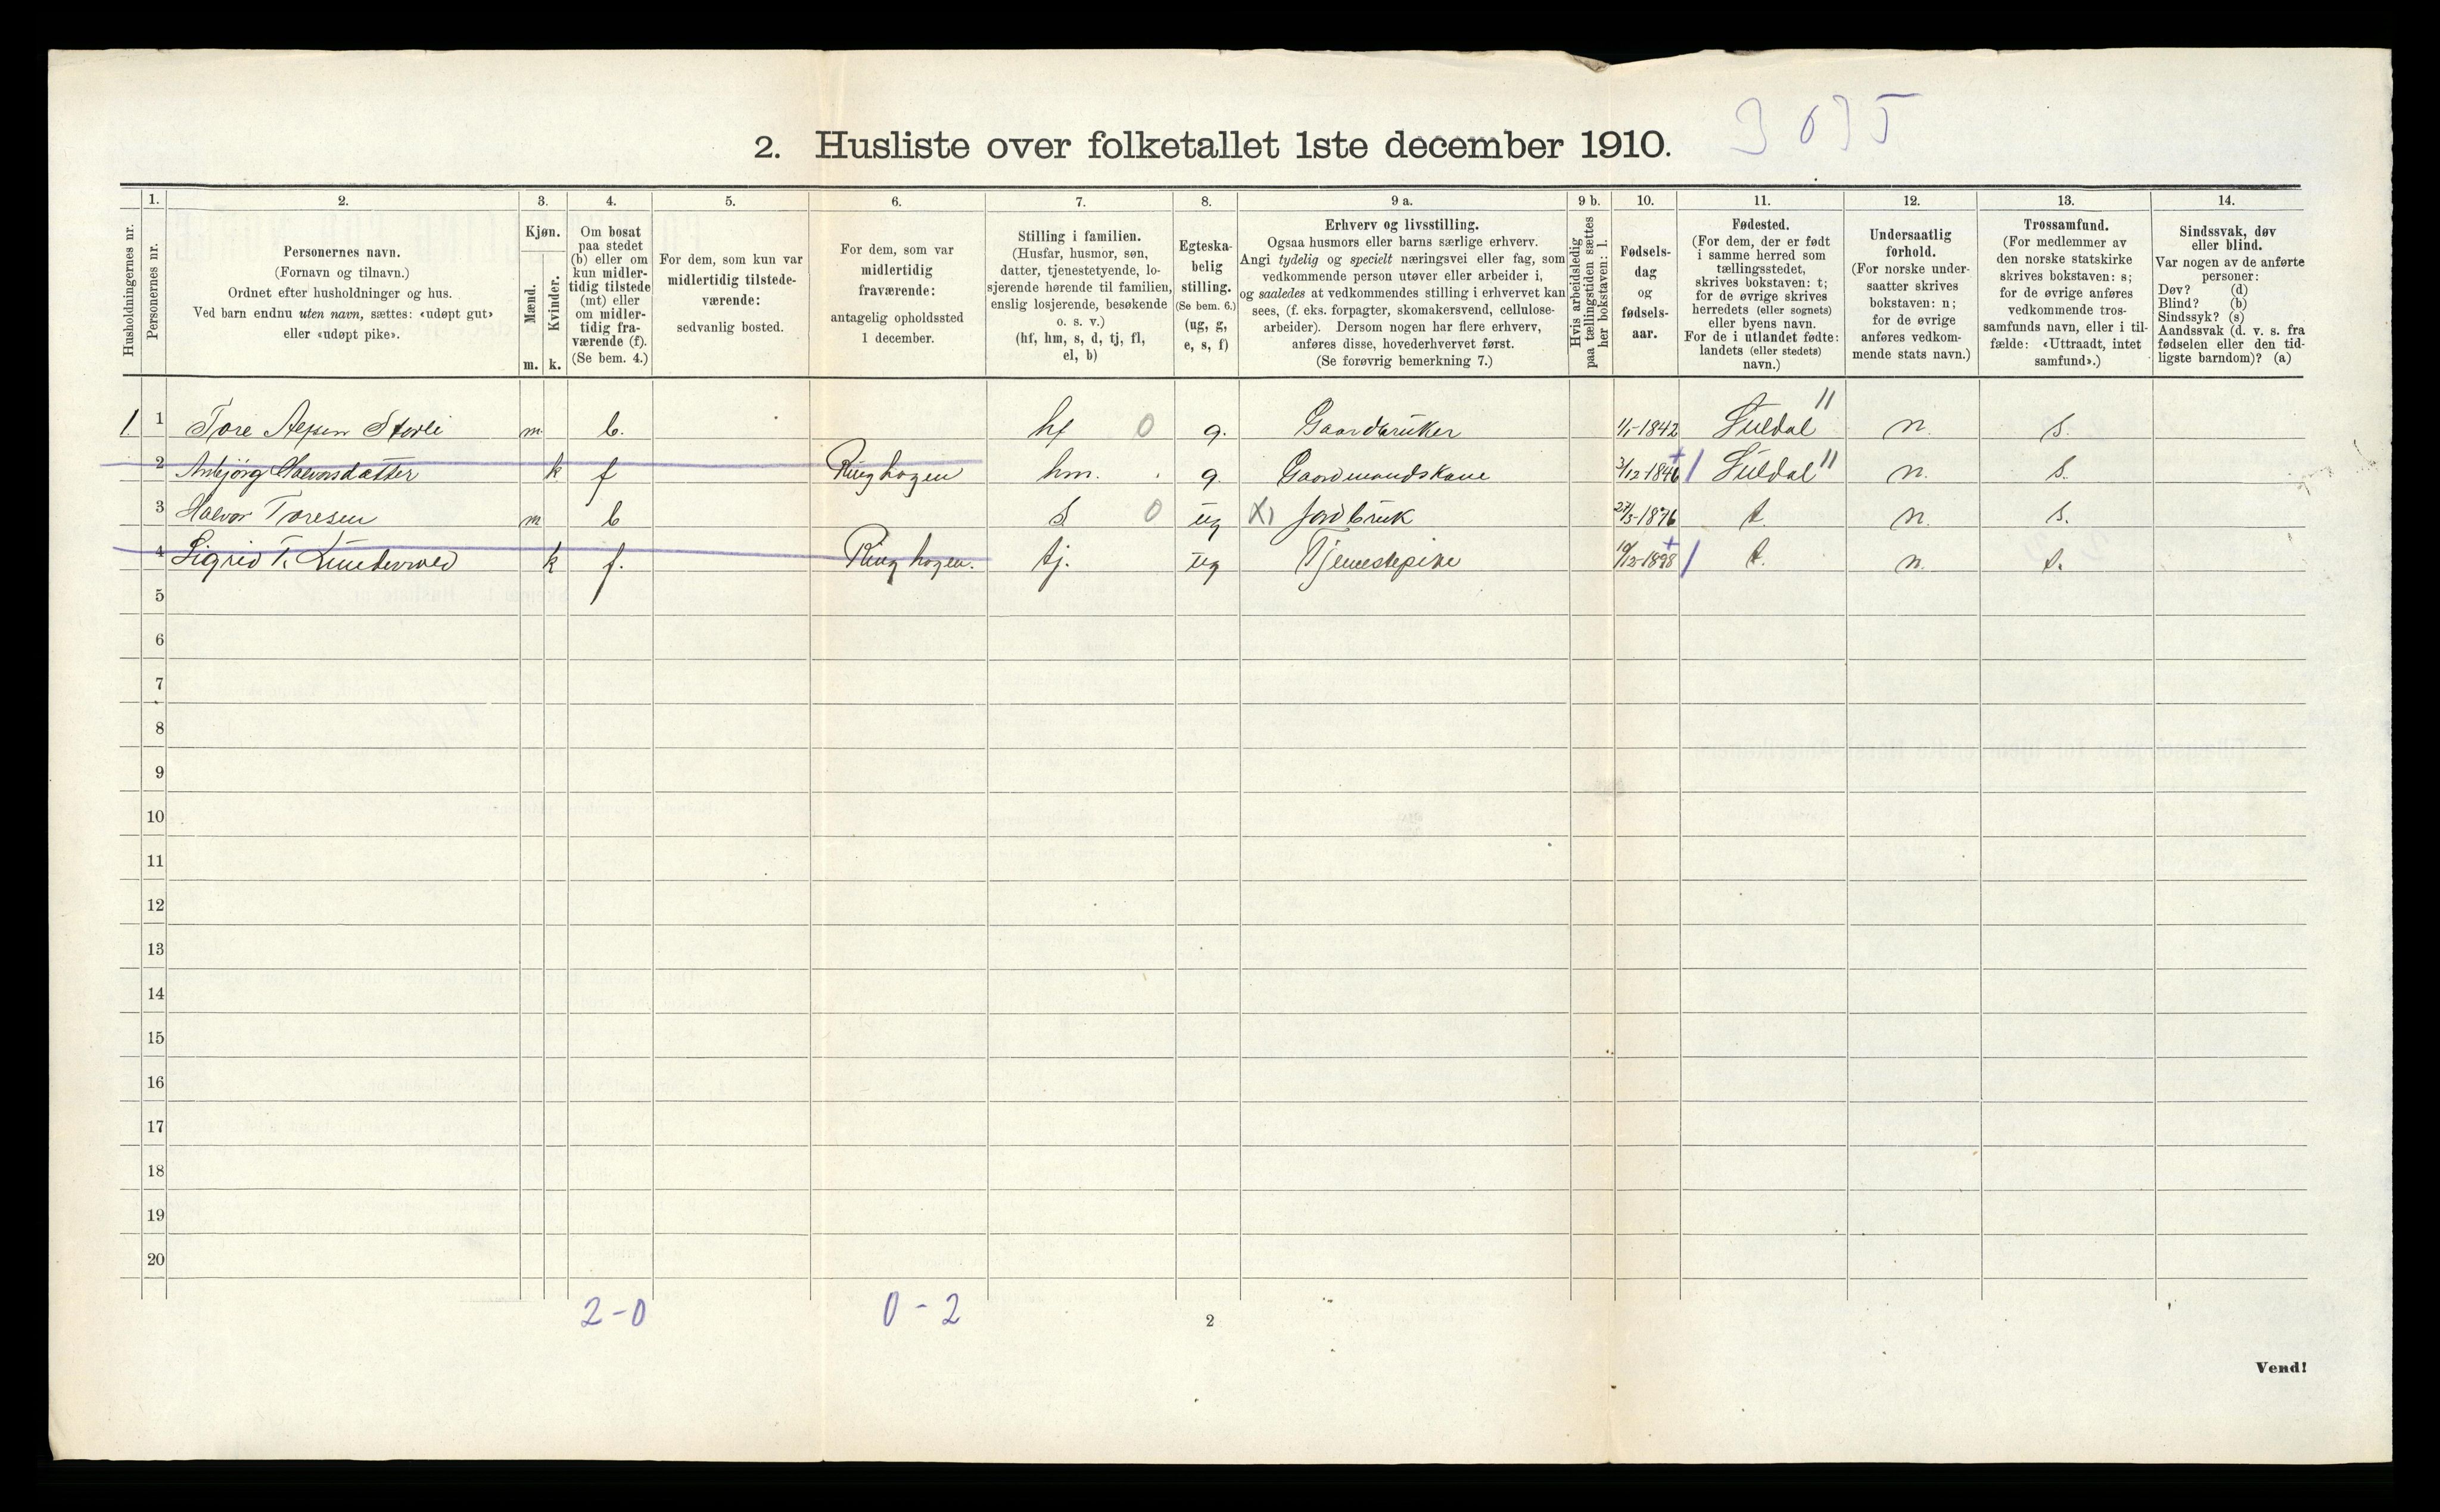 3035
2. Husliste over folketallet 1ste december 1910.
Husholdningernes nr.
1. Personernes nr.
2. Personernes navn.
(Fornavn og tilnavn.)
Ordnet efter husholdninger og hus.
Ved barn endnu uten navn, sættes: «udøpt gut»
eller «udøpt pike».
3. Kjøn.
Mænd. Kvinder.
m. k.
4. Om bosat
paa stedet
(b) eller om
kun midler-
tidig tilstede
(mt) eller
om midler-
tidig fra-
værende (f).
(Se bem. 4.)
5. For dem, som kun var
midlertidig tilstede-
værende:
sedvanlig bosted.
6. For dem, som var
midlertidig
fraværende:
antagelig opholdssted
1 december.
7. Stilling i familien.
(Husfar, husmor, søn,
datter, tjenestetyende, lo-
sjerende hørende til familien,
enslig losjerende, besøkende
o. s. v.)
(hf, hm, s, d, tj, fl,
el, b)
8. Egteska-
belig
stilling.
(Se bem. 6.)
(ug, g,
e, s, f)
9 a. Erhverv og livsstilling.
Ogsaa husmors eller barns særlige erhverv.
Angi tydelig og specielt næringsvei eller fag, som
vedkommende person utøver eller arbeider i,
og saaledes at vedkommendes stilling i erhvervet kan
sees, (f. eks. forpagter, skomakersvend, cellulose-
arbeider). Dersom nogen har flere erhverv,
anføres disse, hovederhvervet først.
(Se forøvrig bemerkning 7.)
9 b. Hvis arbeidsledig
paa tællingstiden sættes
her bokstaven: l.
10. Fødsels-
dag
og
fødsels-
aar.
11. Fødested.
(For dem, der er født
i samme herred som
tællingsstedet,
skrives bokstaven: t;
for de øvrige skrives
herredets (eller sognets)
eller byens navn.
For de i utlandet fødte:
landets (eller stedets)
navn.)
12. Undersaatlig
forhold.
(For norske under-
saatter skrives
bokstaven: n;
for de øvrige
anføres vedkom-
mende stats navn.)
13. Trossamfund.
(For medlemmer av
den norske statskirke
skrives bokstaven: s;
for de øvrige anføres
vedkommende tros-
samfunds navn, eller i til-
fælde: «Uttraadt, intet
samfund».)
14. Sindssvak, døv
eller blind.
Var nogen av de anførte
personer:
Døv? (d)
Blind? (b)
Sindssyk? (s)
Aandssvak (d. v. s. fra
fødselen eller den tid-
ligste barndom)? (a)
1. 1 Tore m. b. hf 0 g. Gaardbruker 1/1-1842 Suldal 11 n. s.
2 Anbjörg Halvorsdatter k f Ringhagen hm. g. Gaardmandskone 3/12-1846 Suldal 11 n. s.
3 Halvor Toresen m b s 0 ug X) Jordbruk 27/3-1876 t. n. s.
4 Sigrid T. k f. Ringhagen. tj. ug Tjenestepike 10/12-1898 t. n. s.
5
6
7
8
9
10
11
12
13
14
15
16
17
18
19
20
2-0 0-2
2
Vend!